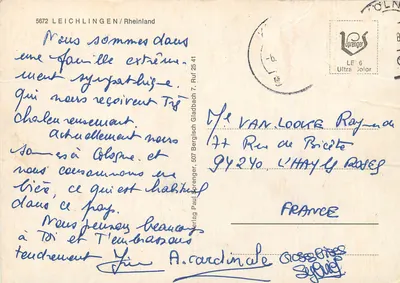 5672 LEICHLINGEN/Rheinland
Nous sommes dans
une famille extrême-
ment sympathique.
qui nous reçoivent Très
chaleureusement.
actuellement nous
sommes à Cologne. et
nous consommons une
bière, ce qui est habituel
dans ce pays.
Nous pensons beaucoup
à Toi et T'embrassons
tendrement
A. cardinale
Grosses Bises
Sylvie
Verlag Paul Sprenger, 507 Bergisch Gladbach 7, Ruf 25 41
Sprenger
LE 6
Ultra Color
KÖLN
VAN LOOKE Raymonde
77 Rue de Bicêtre
94240 L'HAY LES ROSES
FRANCE